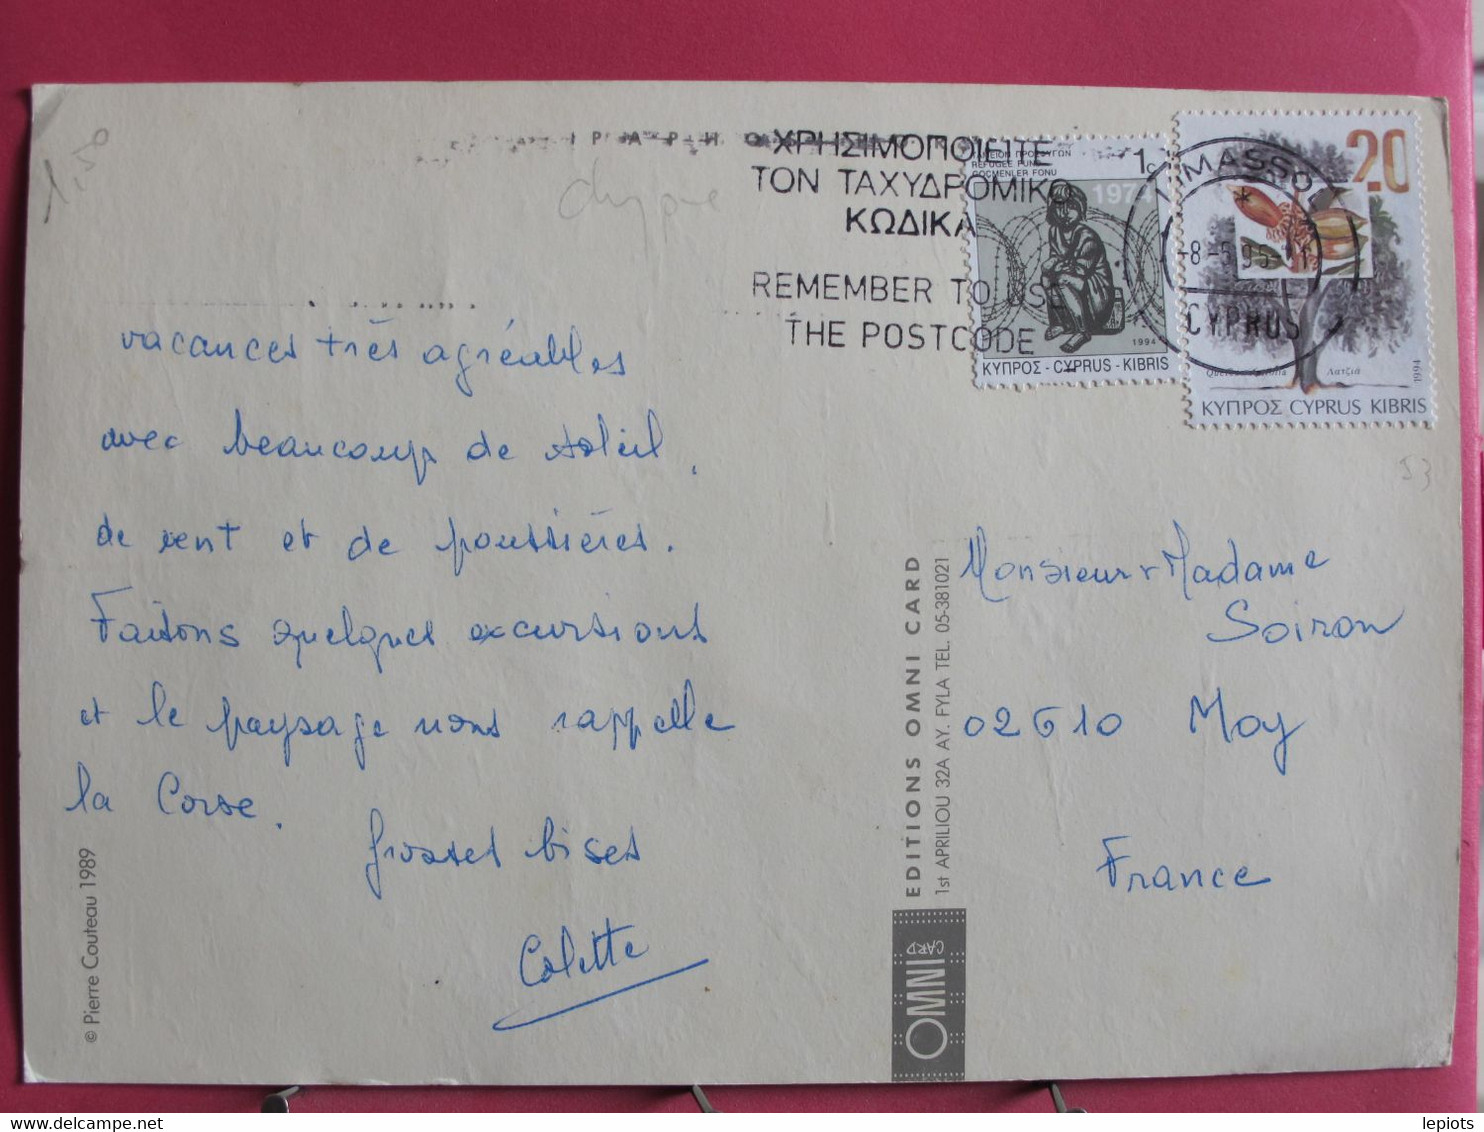 1,50
chypre
ΧΡΗΣΙΜΟΠΟΙΕΙΤΕ
ΤΟΝ ΤΑΧΥΔΡΟΜΙΚΟ
ΚΩΔΙΚΑ
REMEMBER TO USE
THE POSTCODE
ΤΑΜΕΙΟΝ ΠΡΟΣΦΥΓΩΝ
REFUGEE FUND
GÖÇMENLER FONU
1c
1974
1994
ΚΥΠΡΟΣ - CYPRUS - KIBRIS
LIMASSOL
-8-5 95
CYPRUS
20
Λατζιά
1994
ΚΥΠΡΟΣ CYPRUS KIBRIS
53
vacances très agréables
avec beaucoup de soleil,
de vent et de poussières.
Faisons quelques excursions
et le paysage nous rappelle
la Corse.
grosses bises
Colette
© Pierre Couteau 1989
EDITIONS OMNI CARD
1st APRILIOU 32A AY. FYLA TEL. 05-381021
OMNI
CARD
Monsieur + Madame
Soiron
02610 Moy
France
lepiots
delcampe.net